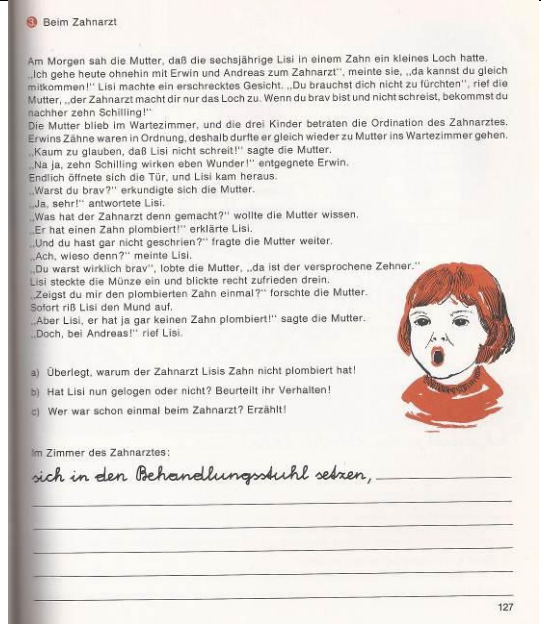 3 Beim Zahnarzt
Am Morgen sah die Mutter, daß die sechsjährige Lisi in einem Zahn ein kleines Loch hatte.
„Ich gehe heute ohnehin mit Erwin und Andreas zum Zahnarzt", meinte sie, „da kannst du gleich
mitkommen!" Lisi machte ein erschrecktes Gesicht. „Du brauchst dich nicht zu fürchten", rief die
Mutter, „der Zahnarzt macht dir nur das Loch zu. Wenn du brav bist und nicht schreist, bekommst du
nachher zehn Schilling!"
Die Mutter blieb im Wartezimmer, und die drei Kinder betraten die Ordination des Zahnarztes.
Erwins Zähne waren in Ordnung, deshalb durfte er gleich wieder zu Mutter ins Wartezimmer gehen.
„Kaum zu glauben, daß Lisi nicht schreit!" sagte die Mutter.
„Na ja, zehn Schilling wirken eben Wunder!" entgegnete Erwin.
Endlich öffnete sich die Tür, und Lisi kam heraus.
„Warst du brav?" erkundigte sich die Mutter.
„Ja, sehr!" antwortete Lisi.
„Was hat der Zahnarzt denn gemacht?" wollte die Mutter wissen.
„Er hat einen Zahn plombiert!" erklärte Lisi.
„Und du hast gar nicht geschrien?" fragte die Mutter weiter.
„Ach, wieso denn?" meinte Lisi.
„Du warst wirklich brav", lobte die Mutter, „da ist der versprochene Zehner."
Lisi steckte die Münze ein und blickte recht zufrieden drein.
„Zeigst du mir den plombierten Zahn einmal?" forschte die Mutter.
Sofort riß Lisi den Mund auf.
„Aber Lisi, er hat ja gar keinen Zahn plombiert!" sagte die Mutter.
„Doch, bei Andreas!" rief Lisi.
a) Überlegt, warum der Zahnarzt Lisis Zahn nicht plombiert hat!
b) Hat Lisi nun gelogen oder nicht? Beurteilt ihr Verhalten!
c) Wer war schon einmal beim Zahnarzt? Erzählt!
Im Zimmer des Zahnarztes:
sich in den Behandlungsstuhl setzen,
127